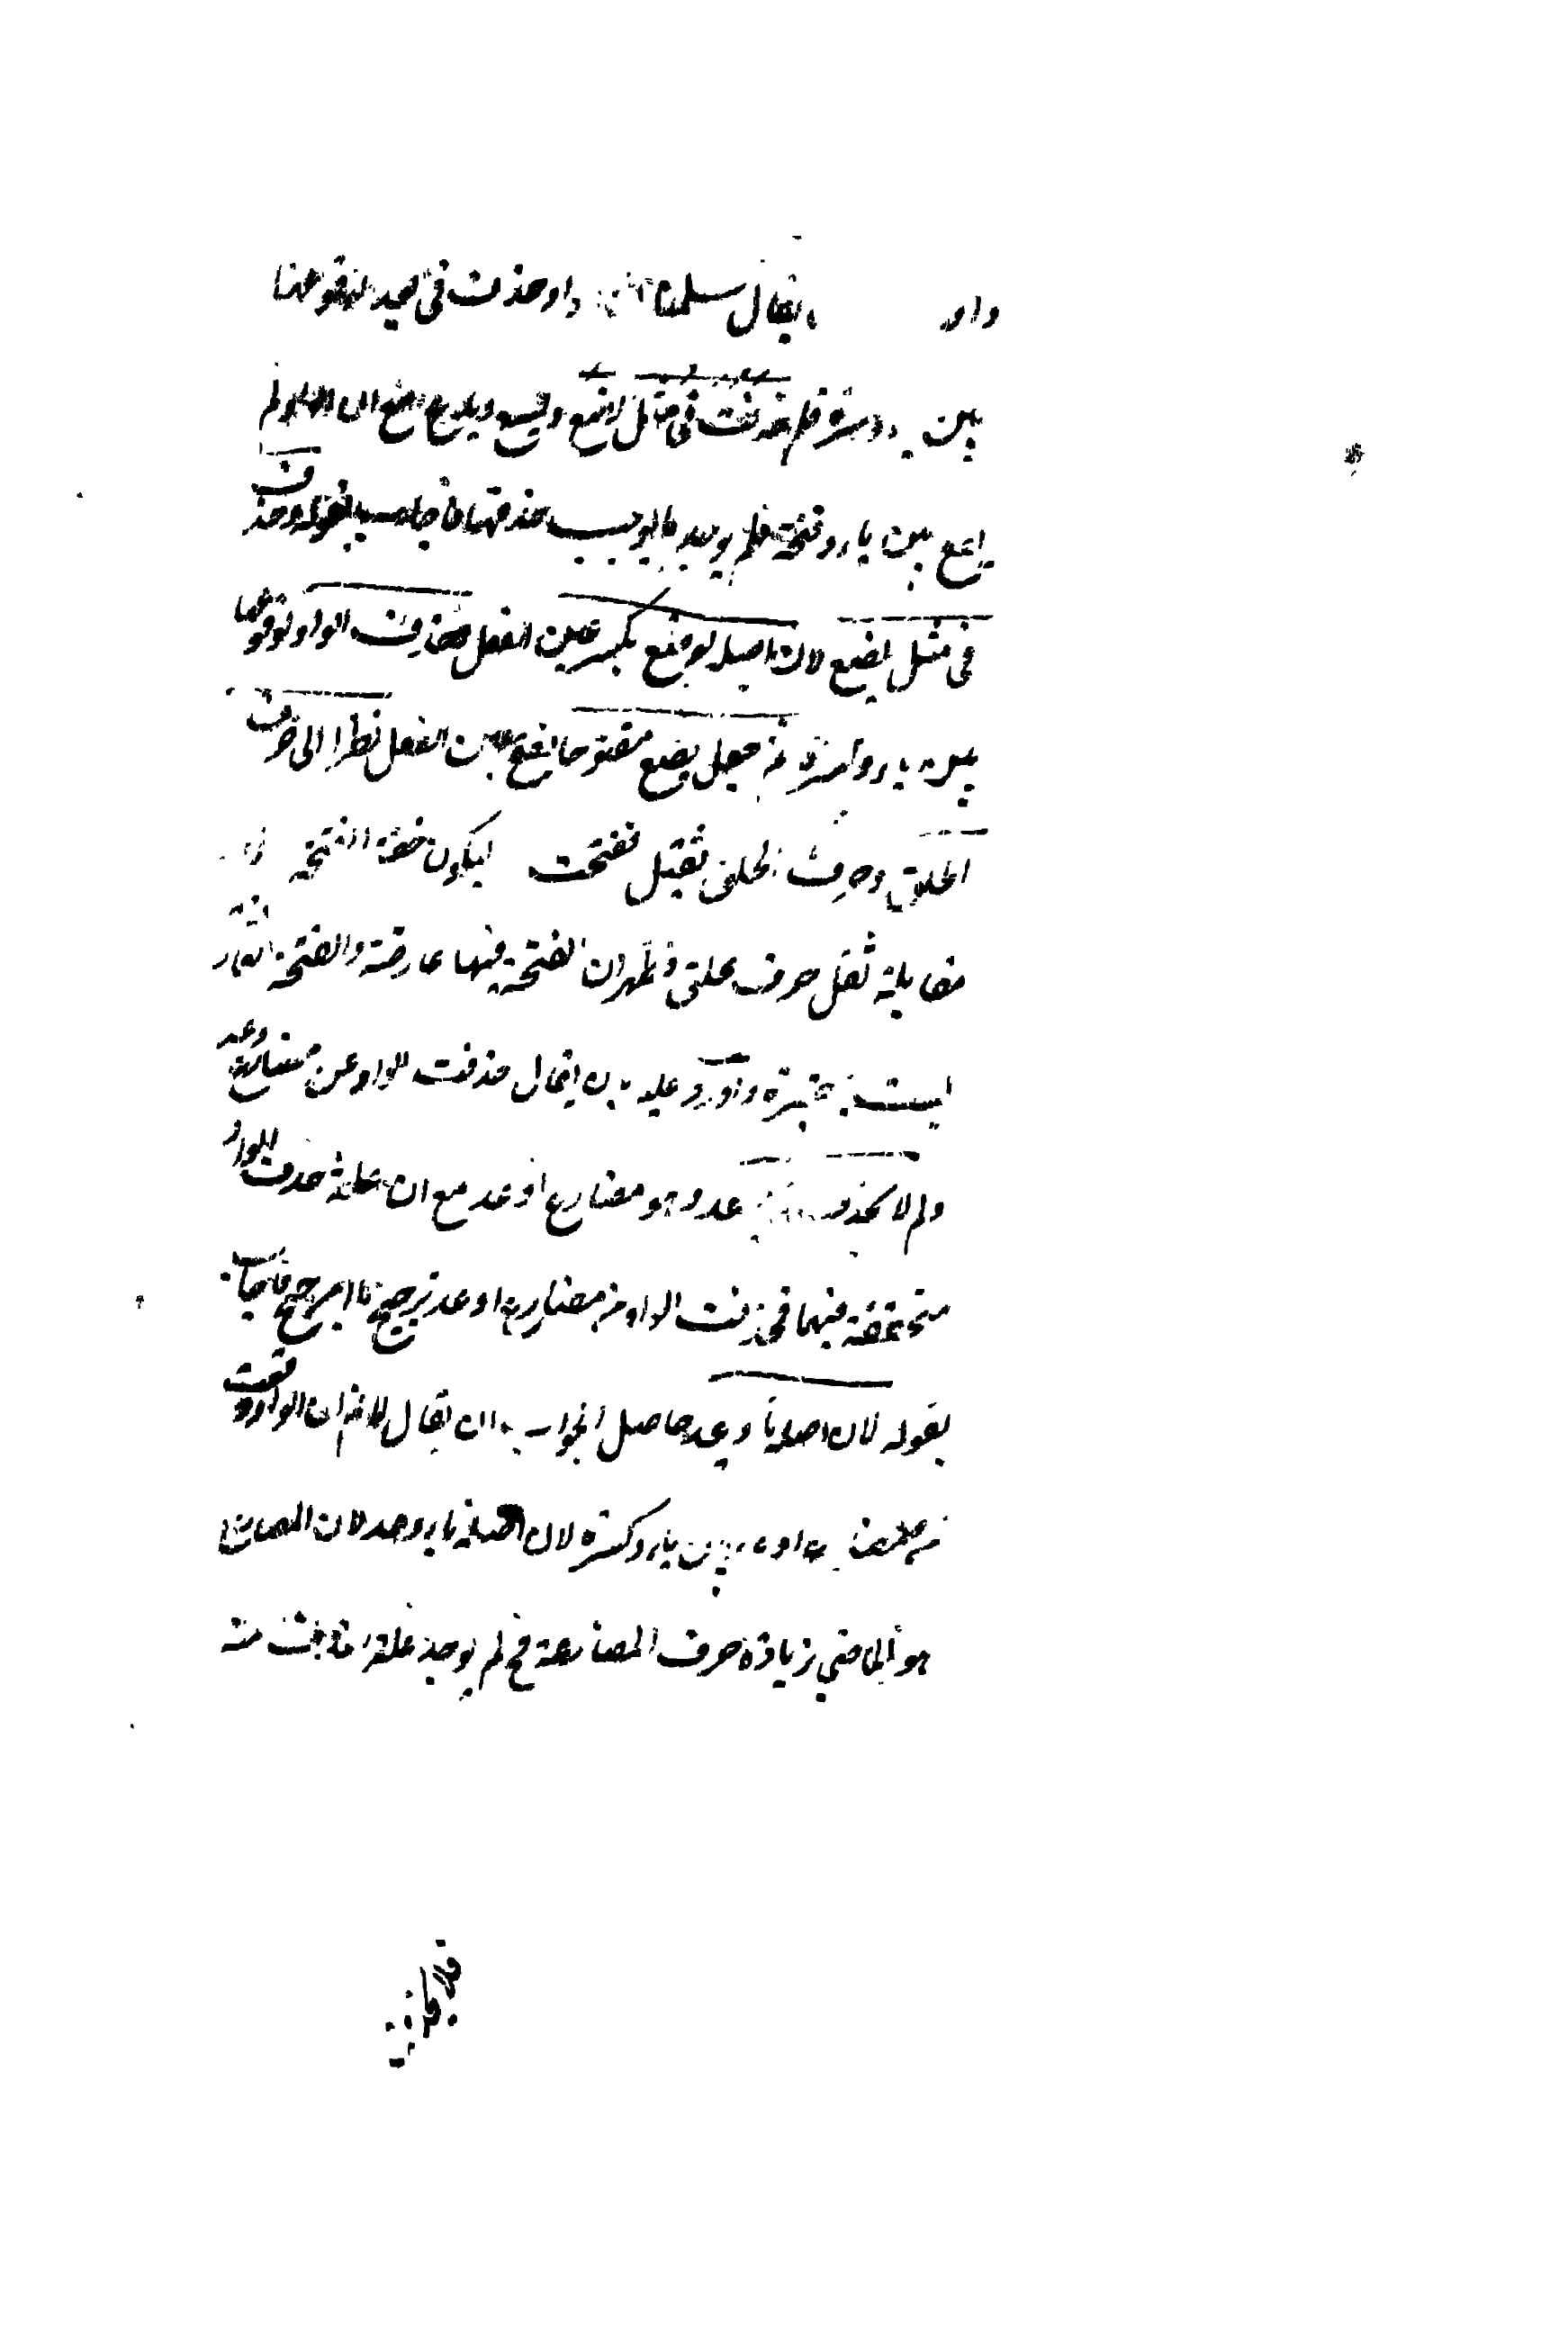 يقال سلمنا ان واو حذفت في يعد لوقوعها
بين وكسرة فلم حذفت في مثل يضع ويسع ويدع مع ان الواو لم
يقع بين ياء وفتحة فلم يوجد ما يوجب حذفها فاجاب بقوله وحذف
في مثل يضع لان اصله يوضع بكسر عين الفعل فحذف الواو لوقوعها
بين ياء وكسرة ثم جعل يضع مفتوحا بفتح عين الفعل نظرا الى حرف
الحلق وحرف الحلق ثقيل ففتحت ليكون خفة الفتحة
مقابلة ثقل حرف حلقي فظهر ان الفتحة فيها عارضة والفتحة العارضة
ليست بمعتبرة واورد عليه بان يقال حذفت الواو عن مضارع وعد
ولم لا يحذف وهو مضارع اوعد مع ان علة حذف الواو
متحققة فيهما فحذفت الواو من مضارع اوعد ترجيح بلا مرجح فاجاب
بقوله لان اصله يأوعد حاصل الجواب ان يقال لا نم ان الواو وقعت
من بين ياء وكسرة لان اصله يأوعد لان المضارع
هو الماضي بزيادة حرف المضارعة فح لم يوجد علة حذفت منه